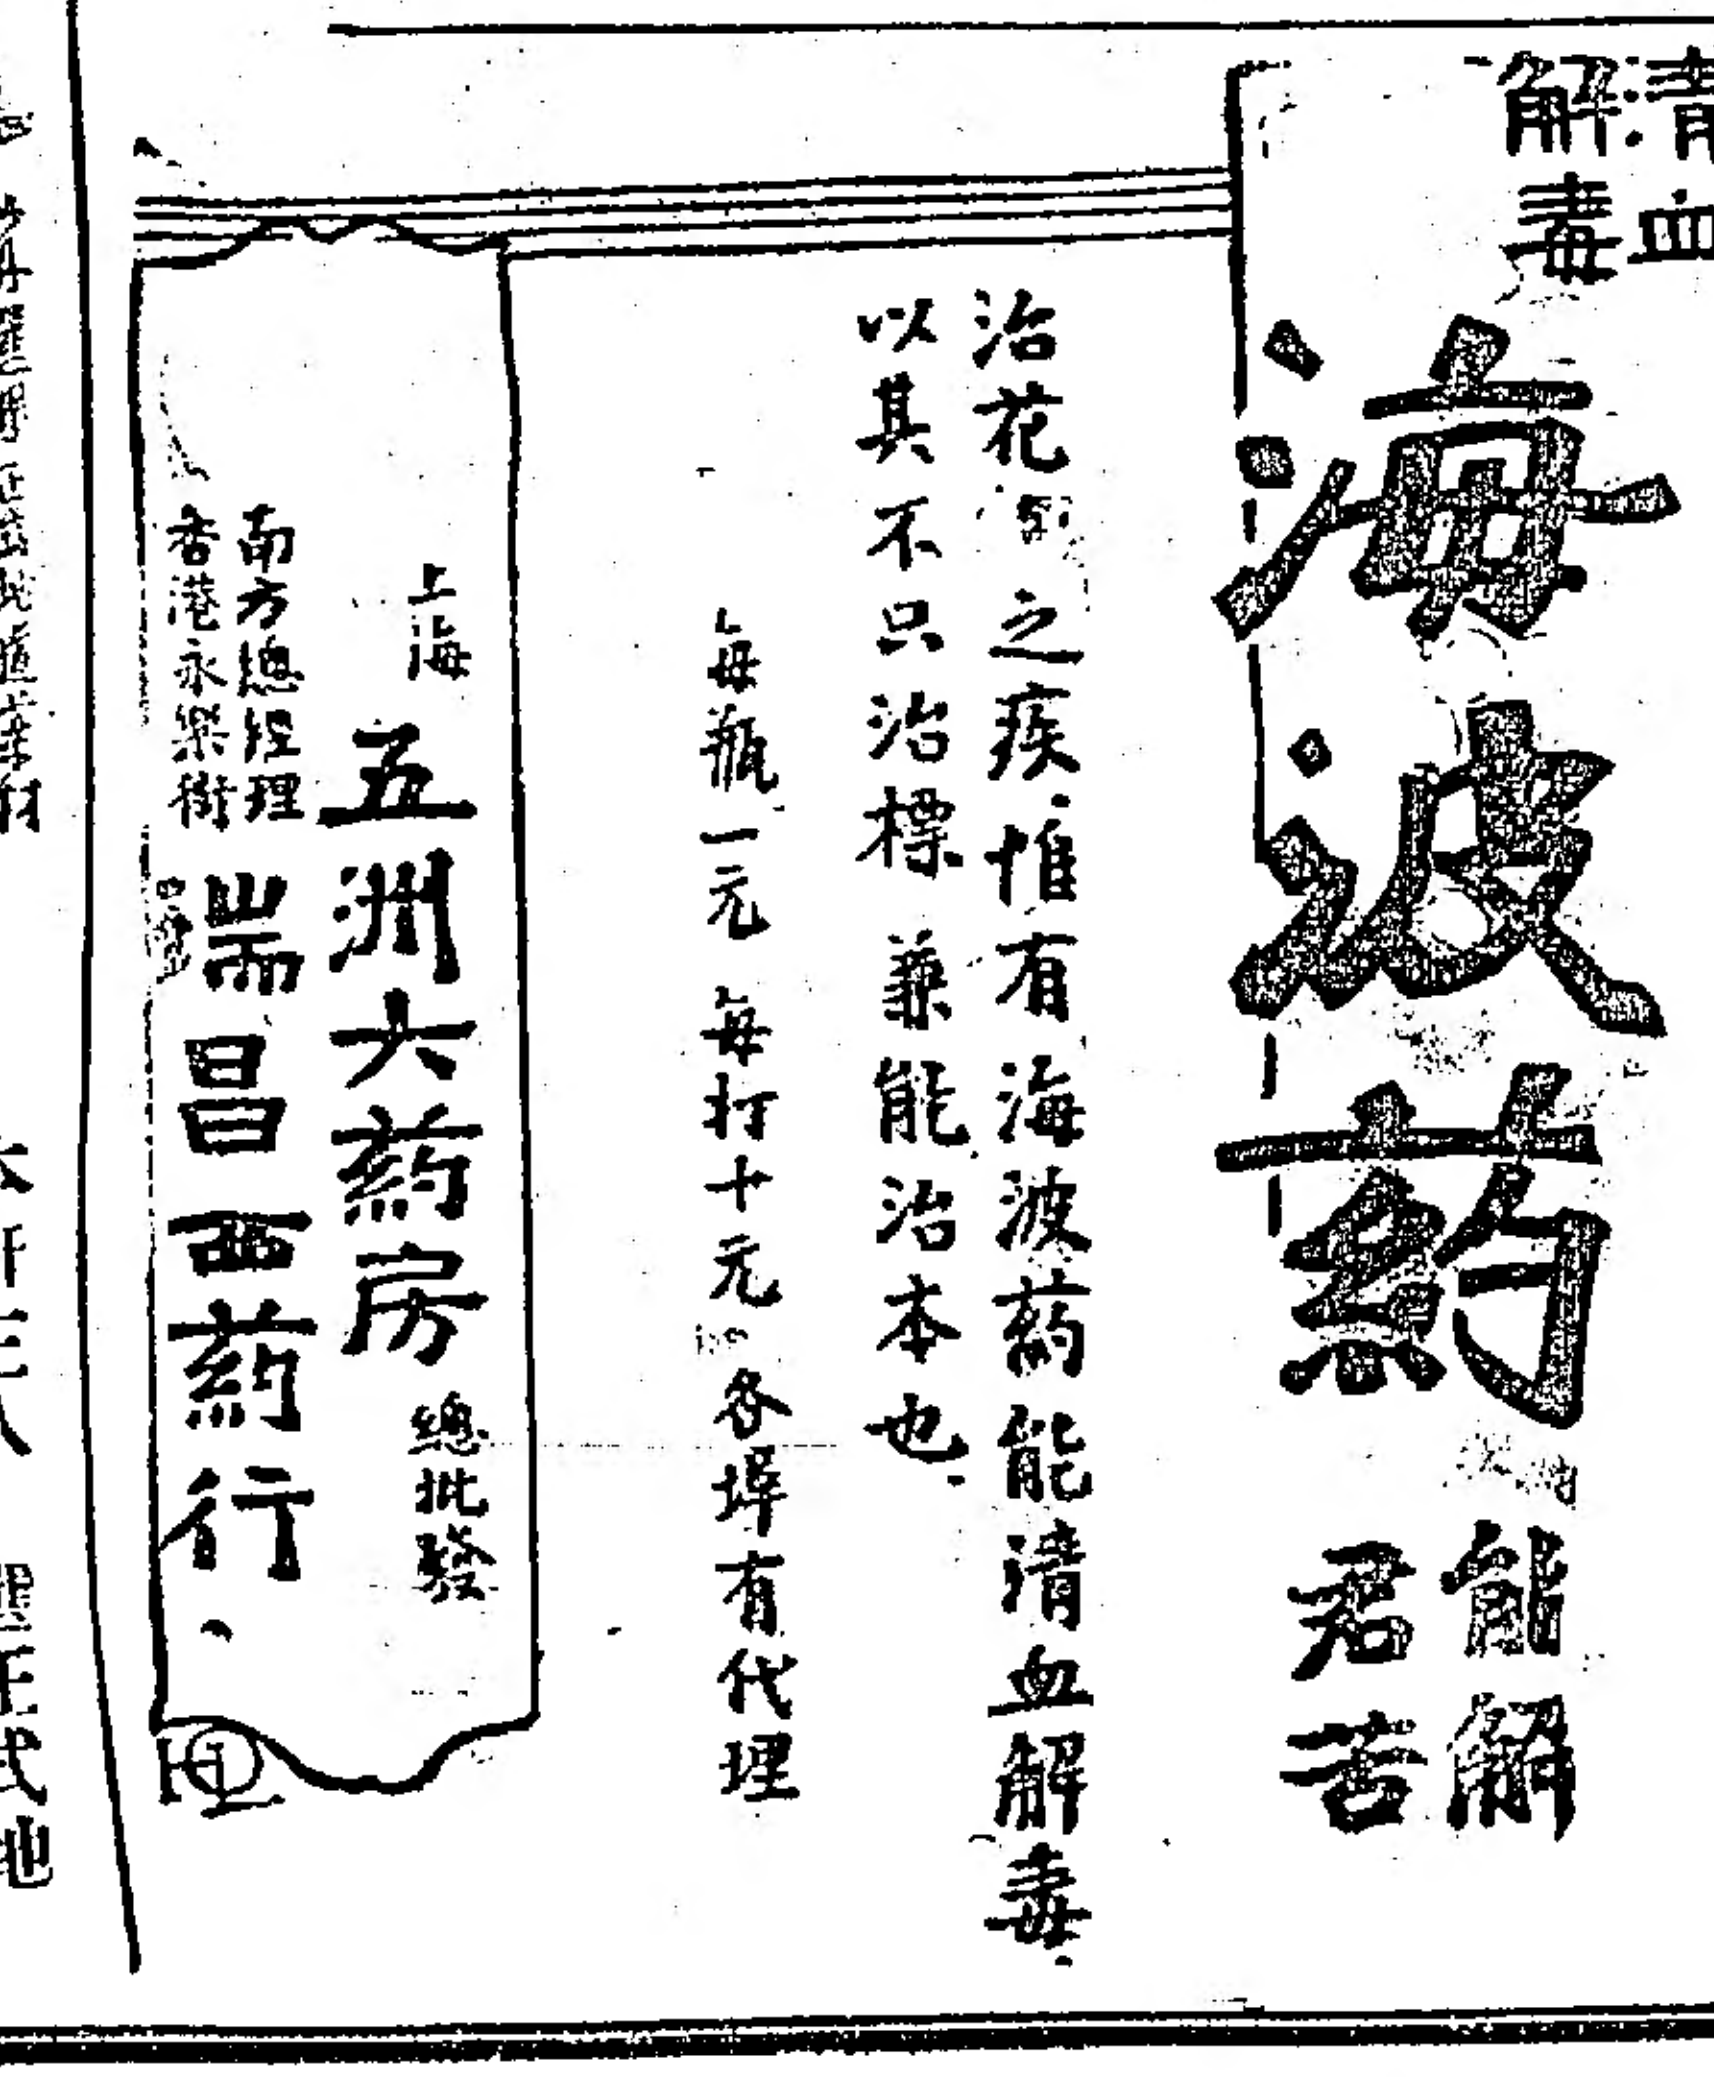 清血
解毒
海波藥
能解
君苦
治花之疾惟有海波葯能清血解毒
以其不只治標兼能治本也
每瓶一元 每打十元 各埠有代理
上海 五洲大葯房 總批發
南方總經理
香港永樂街
瑞昌西葯行